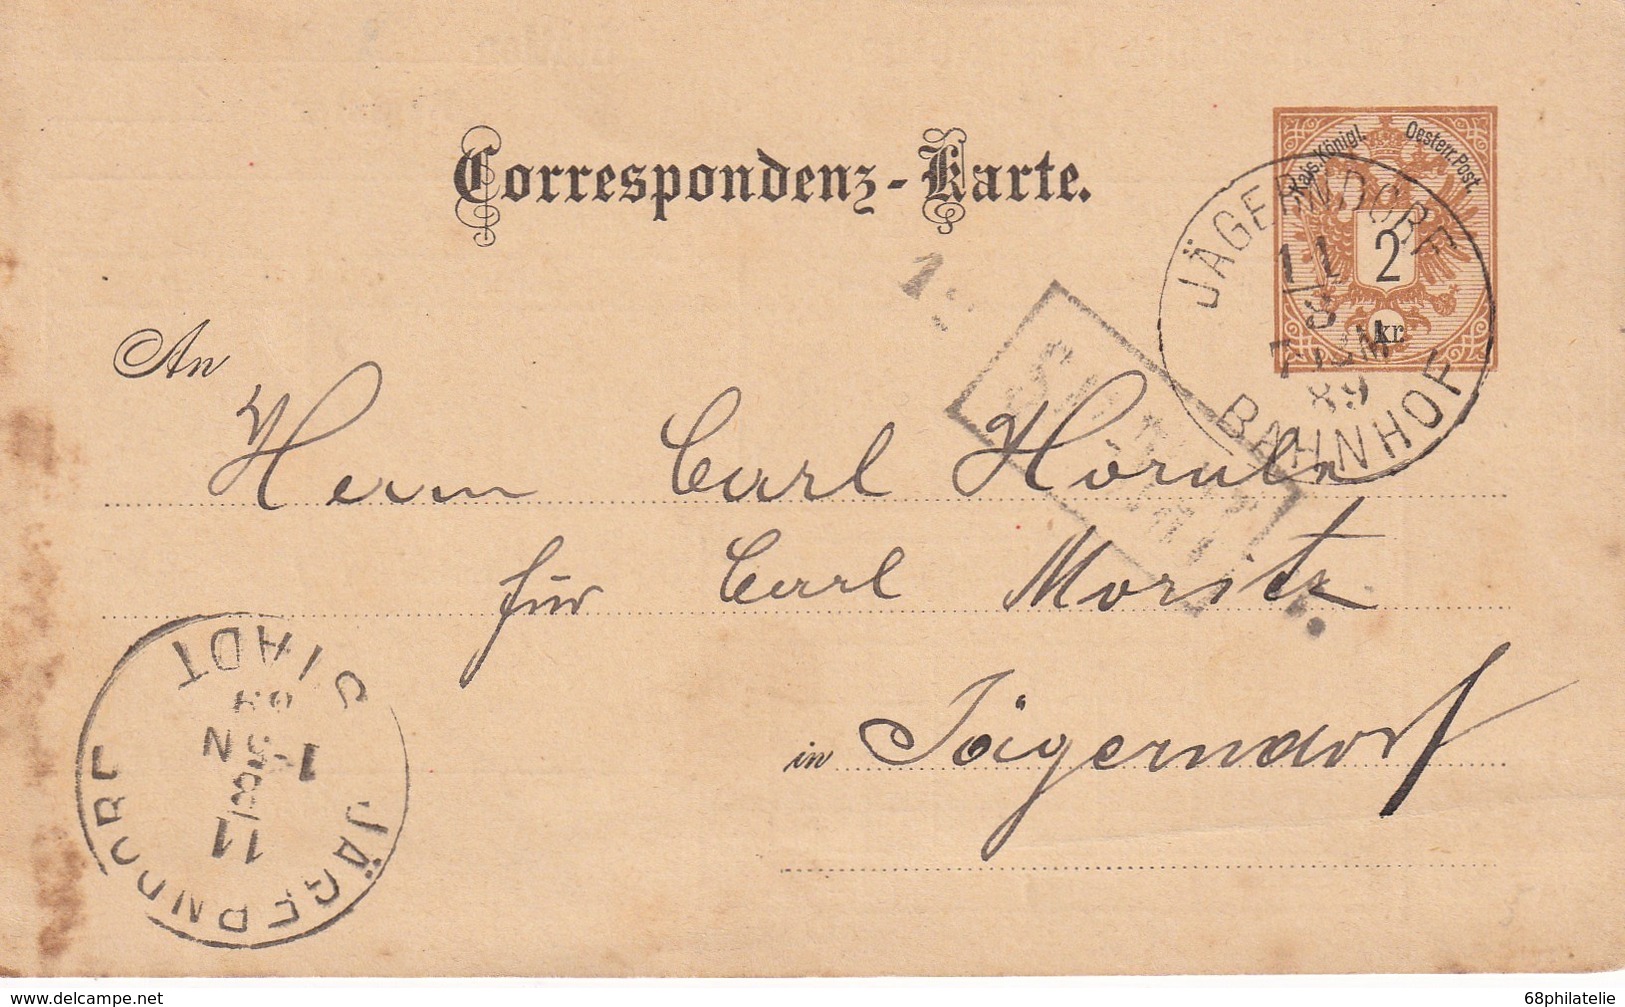 Kais. Königl. Oesterr. Post.
Correspondenz-Karte.
2
kr.
JÄGERNDORF
11
8
89
BAHNHOF
An
Herrn Carl Hornle
für Carl Moritz
in Jägerndorf
JÄGERNDORF
STADT
11
8
1 N
89
www.delcampe.net
68philatelie